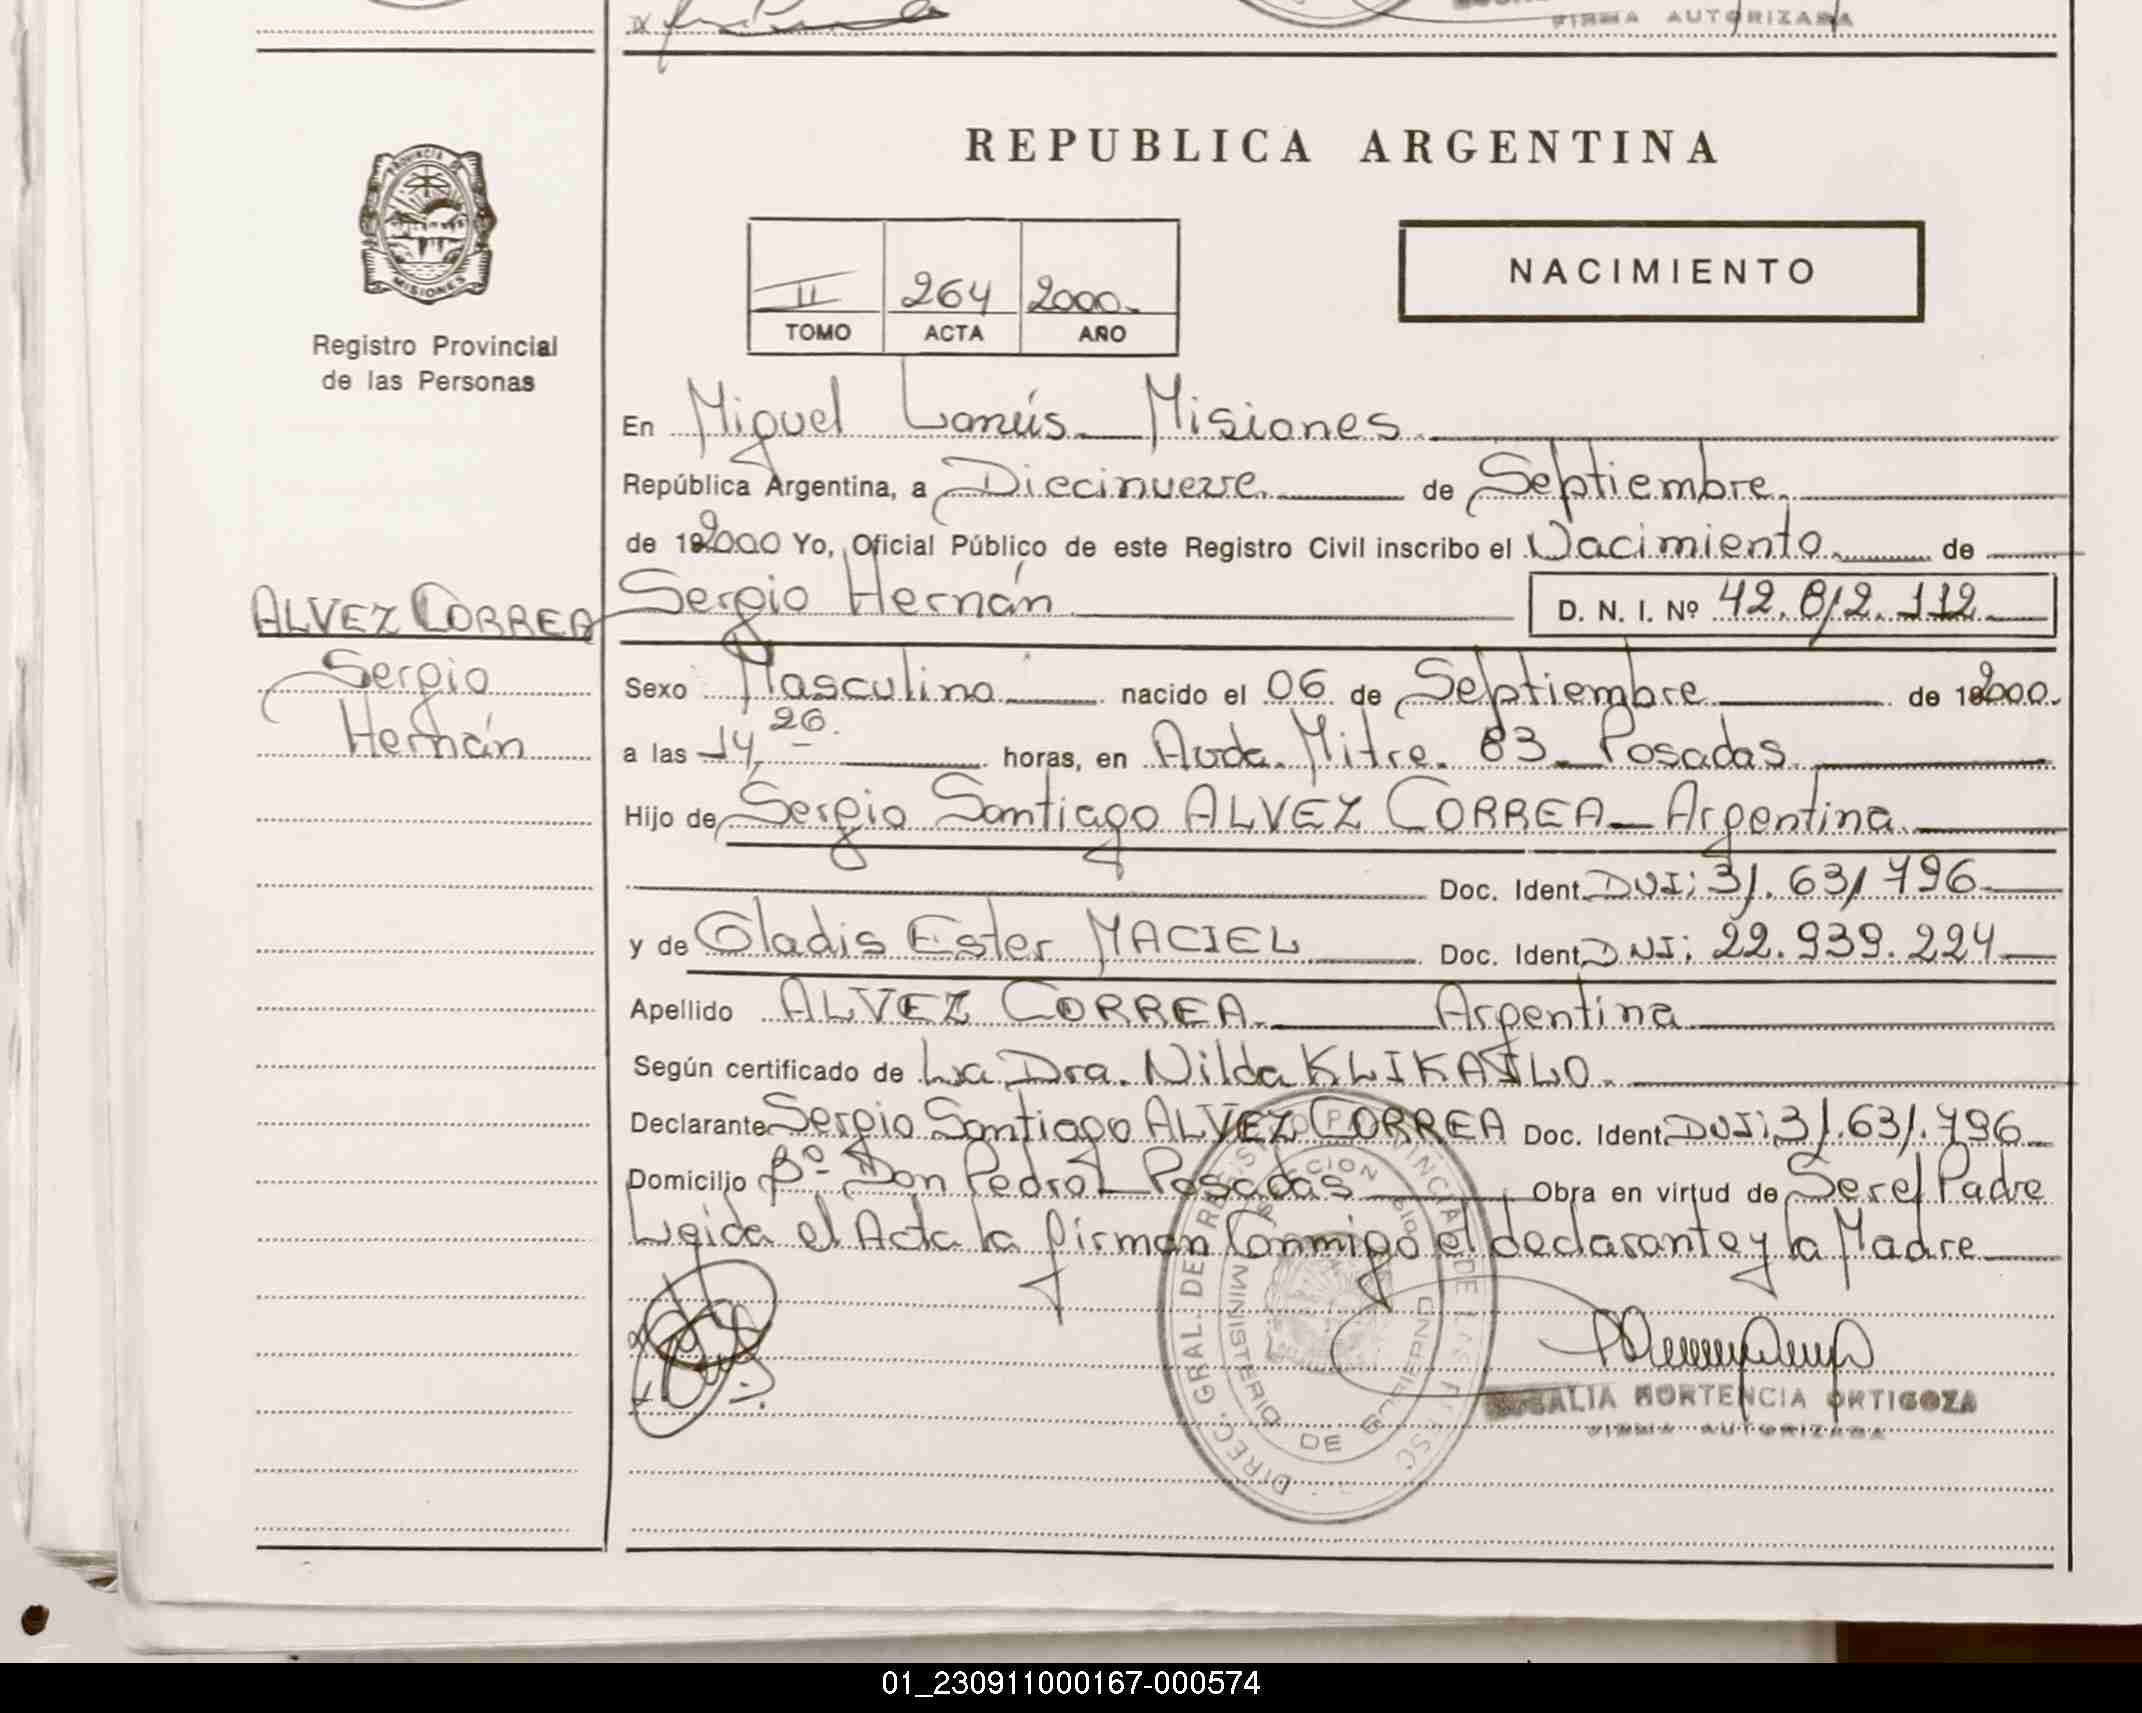 FIRMA AUTORIZADA
REPUBLICA ARGENTINA
PROVINCIA DE
MISIONES
NACIMIENTO
II 264 2000.
TOMO ACTA AÑO
Registro Provincial
de las Personas
En Miguel Lanús. Misiones.
República Argentina, a Diecinueve. de Septiembre.
de 192000 Yo, Oficial Público de este Registro Civil inscribo el Nacimiento de
ALVEZ CORREA Sergio Hernán D. N. I. Nº 42.812.112
Sergio
Hernán
Sexo Masculino nacido el 06 de Septiembre de 192000.
a las 14,26. horas, en Avda. Mitre. 83 Posadas.
Hijo de Sergio Santiago ALVEZ CORREA Argentina
Doc. Ident. DNI: 31.631.796
y de Gladis Ester MACIEL Doc. Ident. DNI: 22.939.224
Apellido ALVEZ CORREA. Argentina
Según certificado de La Dra. Nilda KLIKAILO.
Declarante Sergio Santiago ALVEZ CORREA Doc. Ident. DNI: 31.631.796
Domicilio Bº Don Pedro Posadas Obra en virtud de Ser el Padre
Leida el Acta la firman Conmigo el declarante y la Madre
DIREC. GRAL. DE REGISTRO PROVINCIAL DE LAS
MINISTERIO DE GOBIERNO
HORTENCIA ORTIGOZA
FIRMA AUTORIZADA
01_230911000167-000574